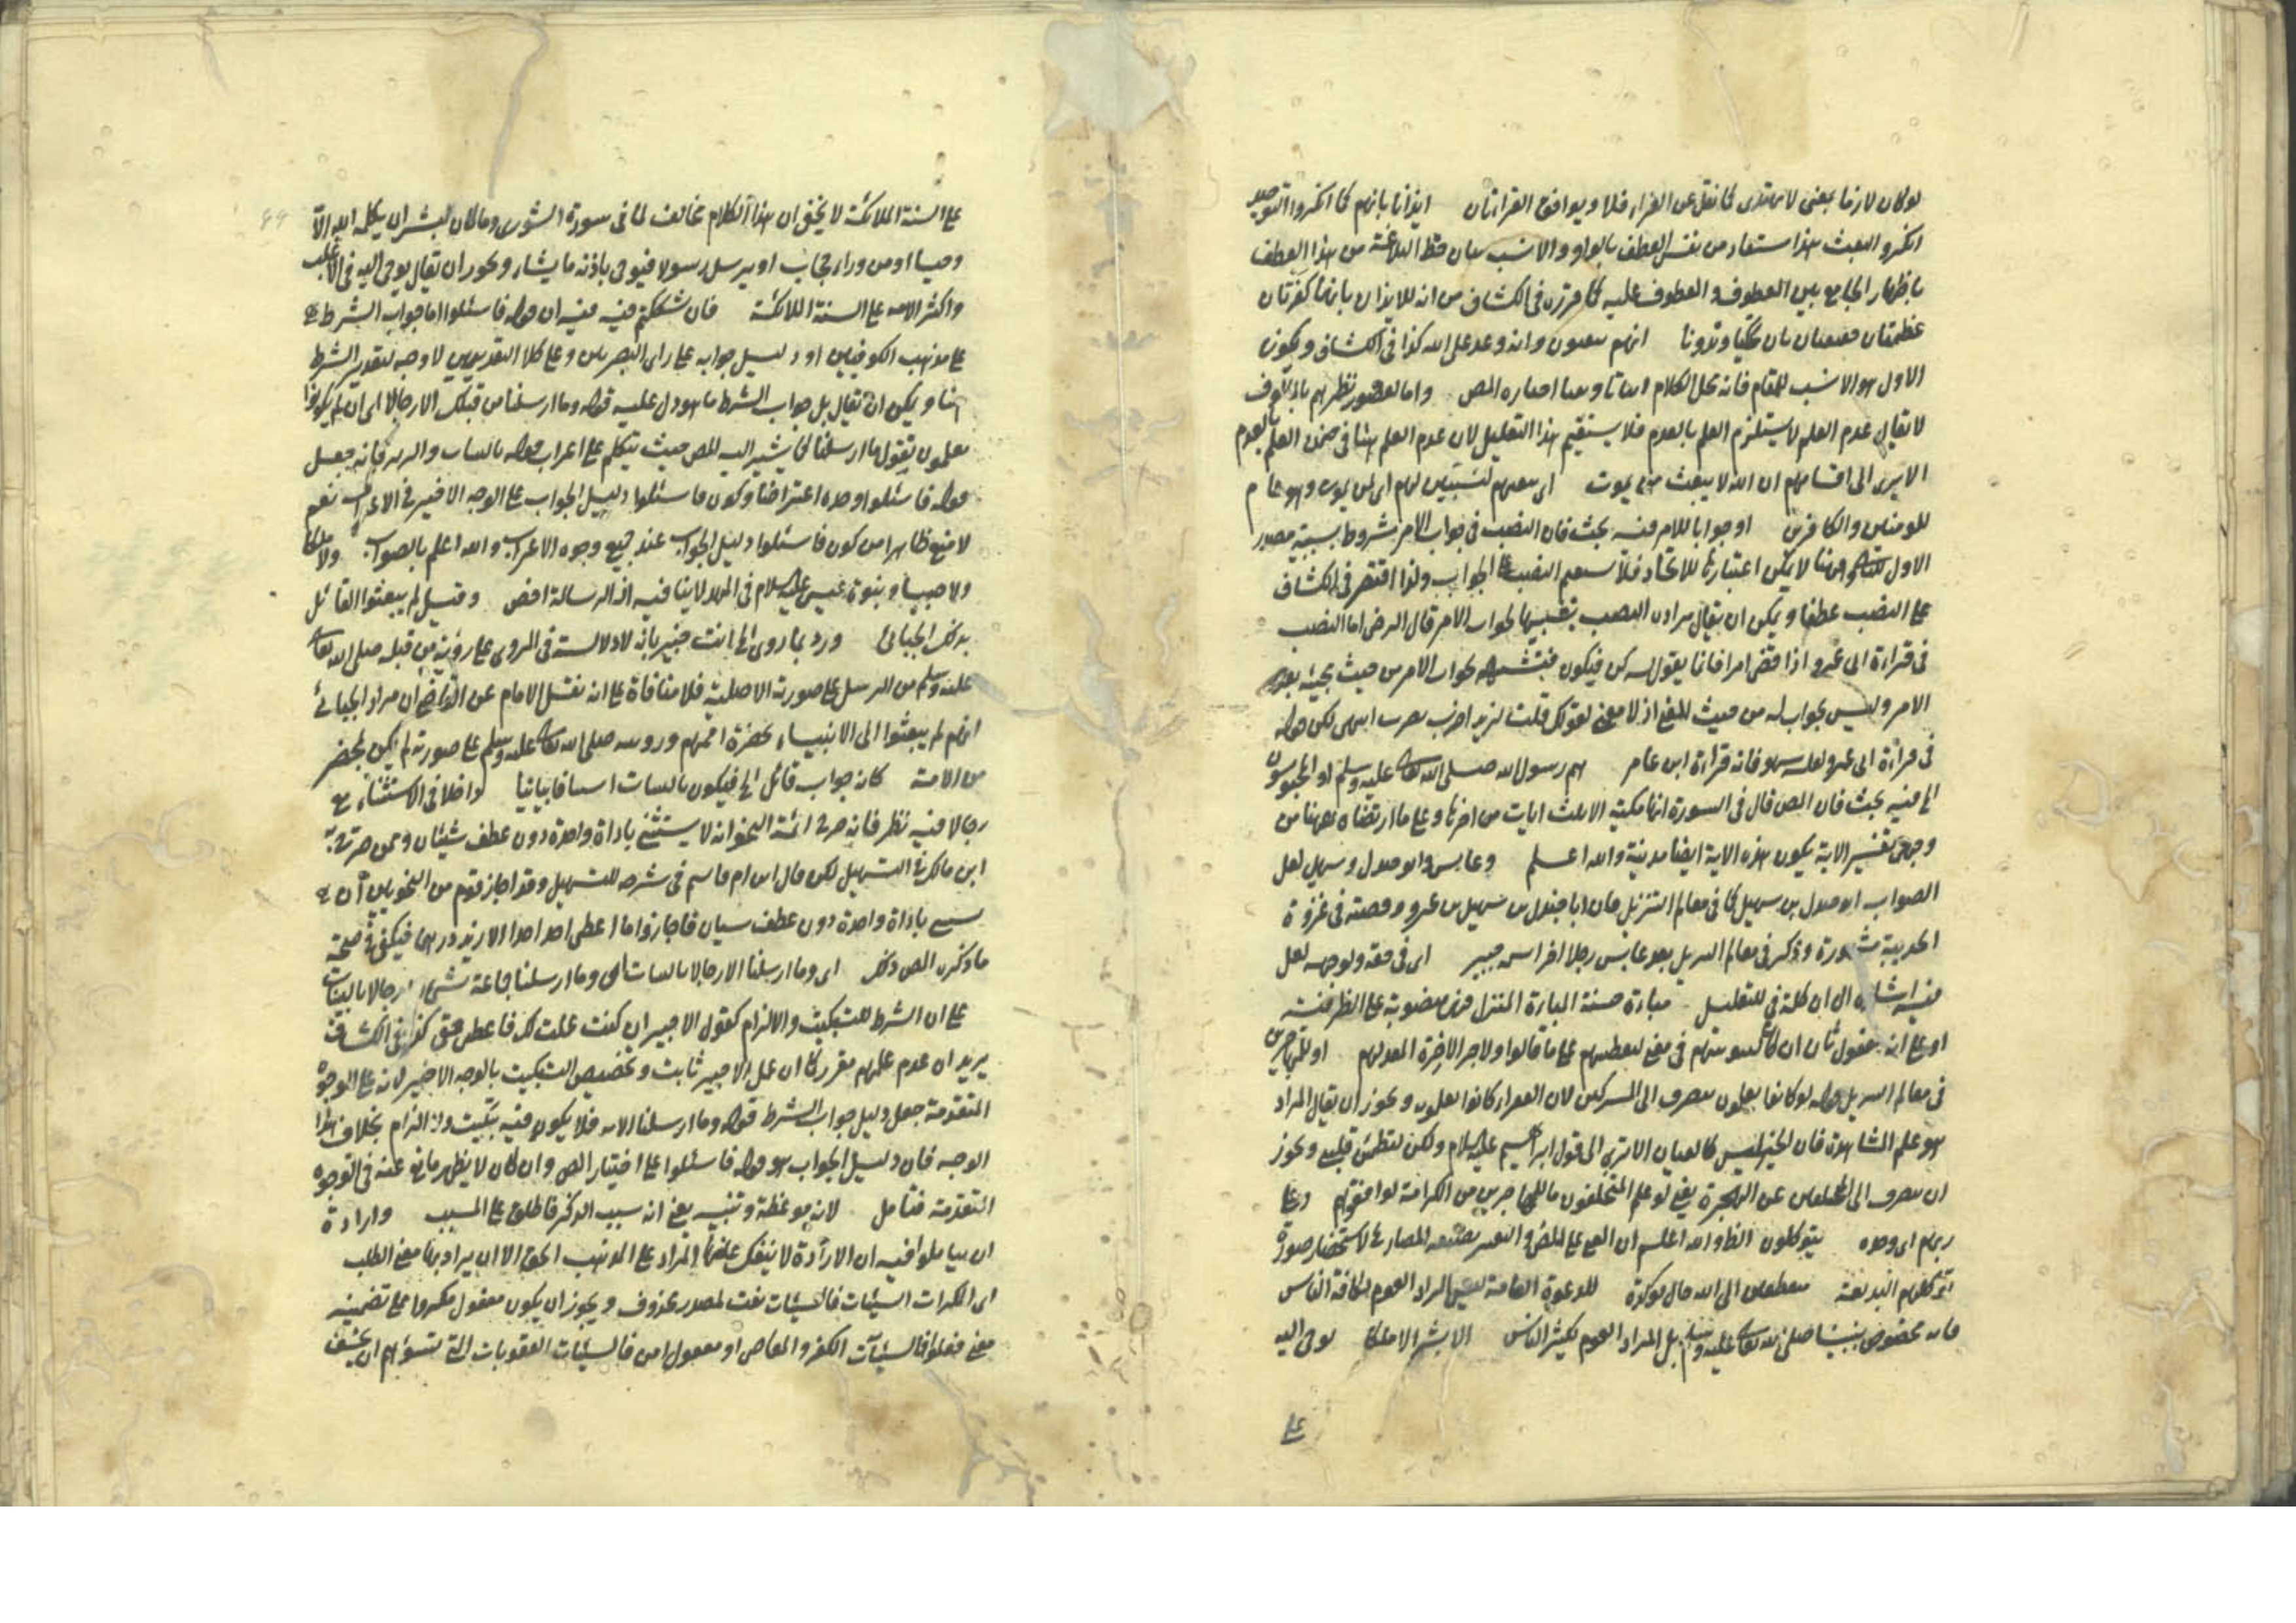 لو كان لازما بمعنى لا يهتدى كما نقل عن الفراء فلا ويوافق القراءتان ايذانا بانهم كما انكروا التوحيد
انكروا البعث هذا مستفاد من نفس العطف بالواو والانسب بيان حظ البلاغة من هذا العطف
باظهار الجامع بين المعطوف والمعطوف عليه كما قرره فى الكشاف من انه للايذان بانهما كفرتان
عظيمتان انهم يبعثون وانه وعد على الله كذا فى الكشاف ويكون
الاول هو الانسب للمقام فانه محل الكلام المص واما لقصور نظرهم بالمألوف
لا يقال عدم العلم لا يستلزم العلم بالعدم فلا يستقيم هذا التعليل لان عدم العلم هنا فى ضمن العلم بالعدم
الا يرى الى اقسامهم ان الله لا يبعث من يموت اى يبعثهم ليبين لهم اى لمن يموت وهو عام
للمؤمنين والكافرين او جوابا للامر فيه بحث فان النصب فى جواب الامر مشروط بسببية مصدر
الاول وههنا لا يمكن اعتبارها للاتحاد فلا يستقيم النصب على الجواب ولذا اقتصر فى الكشاف
على النصب عطفا ويمكن ان يقال مراده النصب تشبيها لجواب الامر قال الرضى اما النصب
فى قراءة ابى عمرو اذا قضى امرا فانما يقول له كن فيكون فتشبيه لجواب الامر من حيث مجيئه بعد
الامر وليس بجواب له من حيث المعنى اذ لا معنى لقولك قلت لزيد اضرب تضرب انتهى لكن قوله
فى قراءة ابى عمرو لعله سهو فانه قراءة ابن عامر هم رسول الله صلى الله تعالى عليه وسلم او المحبوسون
الخ فيه بحث فان المص قال فى السورة انها مكية الا ثلث ايات من اخرها وعلى ما ارتضاه ههنا من
وجهى تفسير الاية يكون هذه الاية ايضا مدنية والله اعلم وعابس وابو جندل وسهيل لعل
الصواب ابو جندل بن سهيل كما فى معالم التنزيل فان ابا جندل بن سهيل بن عمرو وقصته فى غزوة
الحديبية مشهورة وذكر فى معالم التنزيل بعد عابس رجلا اخر اسمه جبير اى فى حقه ولوجهه لعل
فيه اشارة الى ان كلمة فى للتعليل مباءة حسنة المباءة المنزل فهى منصوبة على الظرفية
او على انه مفعول ثان ان كان لنبوئنهم فى معنى لنعطينهم على ما قالوا ولاجر الاخرة المعد لهم او للمهاجرين
فى معالم التنزيل قوله لو كانوا يعلمون ينصرف الى المشركين لان المهاجرين كانوا يعلمون ويجوز ان يقال المراد
هو علم المشاهدة فان الخبر ليس كالعيان الا ترى الى قول ابراهيم عليه السلام ولكن ليطمئن قلبى ويجوز
ان ينصرف الى المتخلفين عن الهجرة يعنى لو علم المتخلفون ما للمهاجرين من الكرامة لوافقوهم وعلى
ربهم اى وحده يتوكلون الظاهر والله اعلم ان المعنى على المضى والتعبير بصيغة المضارع لاستحضار صورة
توكلهم البديعة منقطعين الى الله حال مؤكدة للدعوة العامة ليس المراد العموم لكافة الناس
فانه مخصوص بنبينا صلى الله تعالى عليه وسلم بل المراد العموم لكثير الناس الا بشرا لا ملكا يوحى اليه
على
على السنة الملائكة لا يخفى ان هذا الكلام مخالف لما فى سورة الشورى وما كان لبشر ان يكلمه الله الا
وحيا او من وراء حجاب او يرسل رسولا فيوحى باذنه ما يشاء ويجوز ان يقال يوحى اليه فى الاغلب
واكثر الامر على السنة الملائكة فان شككتم فيه فيه ان قوله فاسئلوا اما جواب الشرط
على مذهب الكوفيين او دليل جوابه على راى البصريين وعلى كلا التقديرين لا وجه لتقدير الشرط
هنا ويمكن ان يقال بل جواب الشرط ما هو دل عليه قوله وما ارسلنا من قبلك الا رجالا اى ان لم يكونوا
يعلمون يقول ما ارسلنا كما يشير اليه المص حيث يتكلم على اعراب قوله بالبينات والزبر فانه جعل
قوله فاسئلوا وحده اعتراضا وكون فاسئلوا دليل الجواب على الوجه الاخير فى الاعراب نعم
لا منع ظاهرا من كون فاسئلوا دليل الجواب عند جميع وجوه الاعراب والله اعلم بالصواب ولا ملكا
ولا صبيا ونبوة عيسى عليه السلام فى المهد لا ينافيه اذ الرسالة اخص وقيل لم يبعثوا القائل
بذلك الجبائى ورد بما روى الخ انت خبير بانه لا دلالة فى المروى على رؤية من قبله صلى الله تعالى
عليه وسلم من الرسل على صورته الاصلية فلا منافاة على انه نقل الامام عن القاضى ان مراد الجبائى
انهم لم يبعثوا الى الانبياء بحضرة اممهم ورويته صلى الله تعالى عليه وسلم على صورته لم يكن بمحضر
من الامة كانه جواب قائل الخ فيكون بالبينات استينافا بيانيا داخلا فى الاستثناء مع
رجالا فيه نظر فانه صرح ائمة النحو انه لا يستثنى باداة واحدة دون عطف شيئان وممن صرح به
ابن مالك فى التسهيل لكن قال ابن ام قاسم فى شرحه للتسهيل وقد اجاز قوم من النحويين ان
باداة واحدة دون عطف شيئان فاجازوا ما اعطى احد احدا الا زيد درهما فيكفى فى صحة
ما ذكره المص ذلك اى وما ارسلنا الا رجالا بالبينات اى وما ارسلنا جماعة بشئ الا رجالا بالبينات
على ان الشرط للتبكيت والالزام كقول الاجير ان كنت عملت لك فاعطنى حقى كذا فى الكشاف
يريد ان عدم علمهم مقرر كما ان عمل الاجير ثابت وتخصيص التبكيت بالوجه الاخير لانه على الوجوه
المتقدمة جعل دليل جواب الشرط قوله وما ارسلنا الاية فلا يكون فيه تبكيت والزام بخلاف هذا
الوجه فان دليل الجواب هو قوله فاسئلوا على اختيار المص وان كان لا يظهر مانع عنه فى الوجوه
المتقدمة فتأمل لانه موعظة وتنبيه يعنى انه سبب الذكر فاطلق على المسبب وارادة
ان يتاملوا فيه ان الارادة لا ينفك عنها المراد على المذهب الحق الا ان يراد بها معنى الطلب
اى المكرات السيئات فالسيئات نعت لمصدر محذوف ويجوز ان يكون مفعول مكروا على تضمينه
معنى فعلوا فالسيئات الكفر والمعاصى او مفعول امن فالسيئات العقوبات التى تسوؤهم ان يخسف